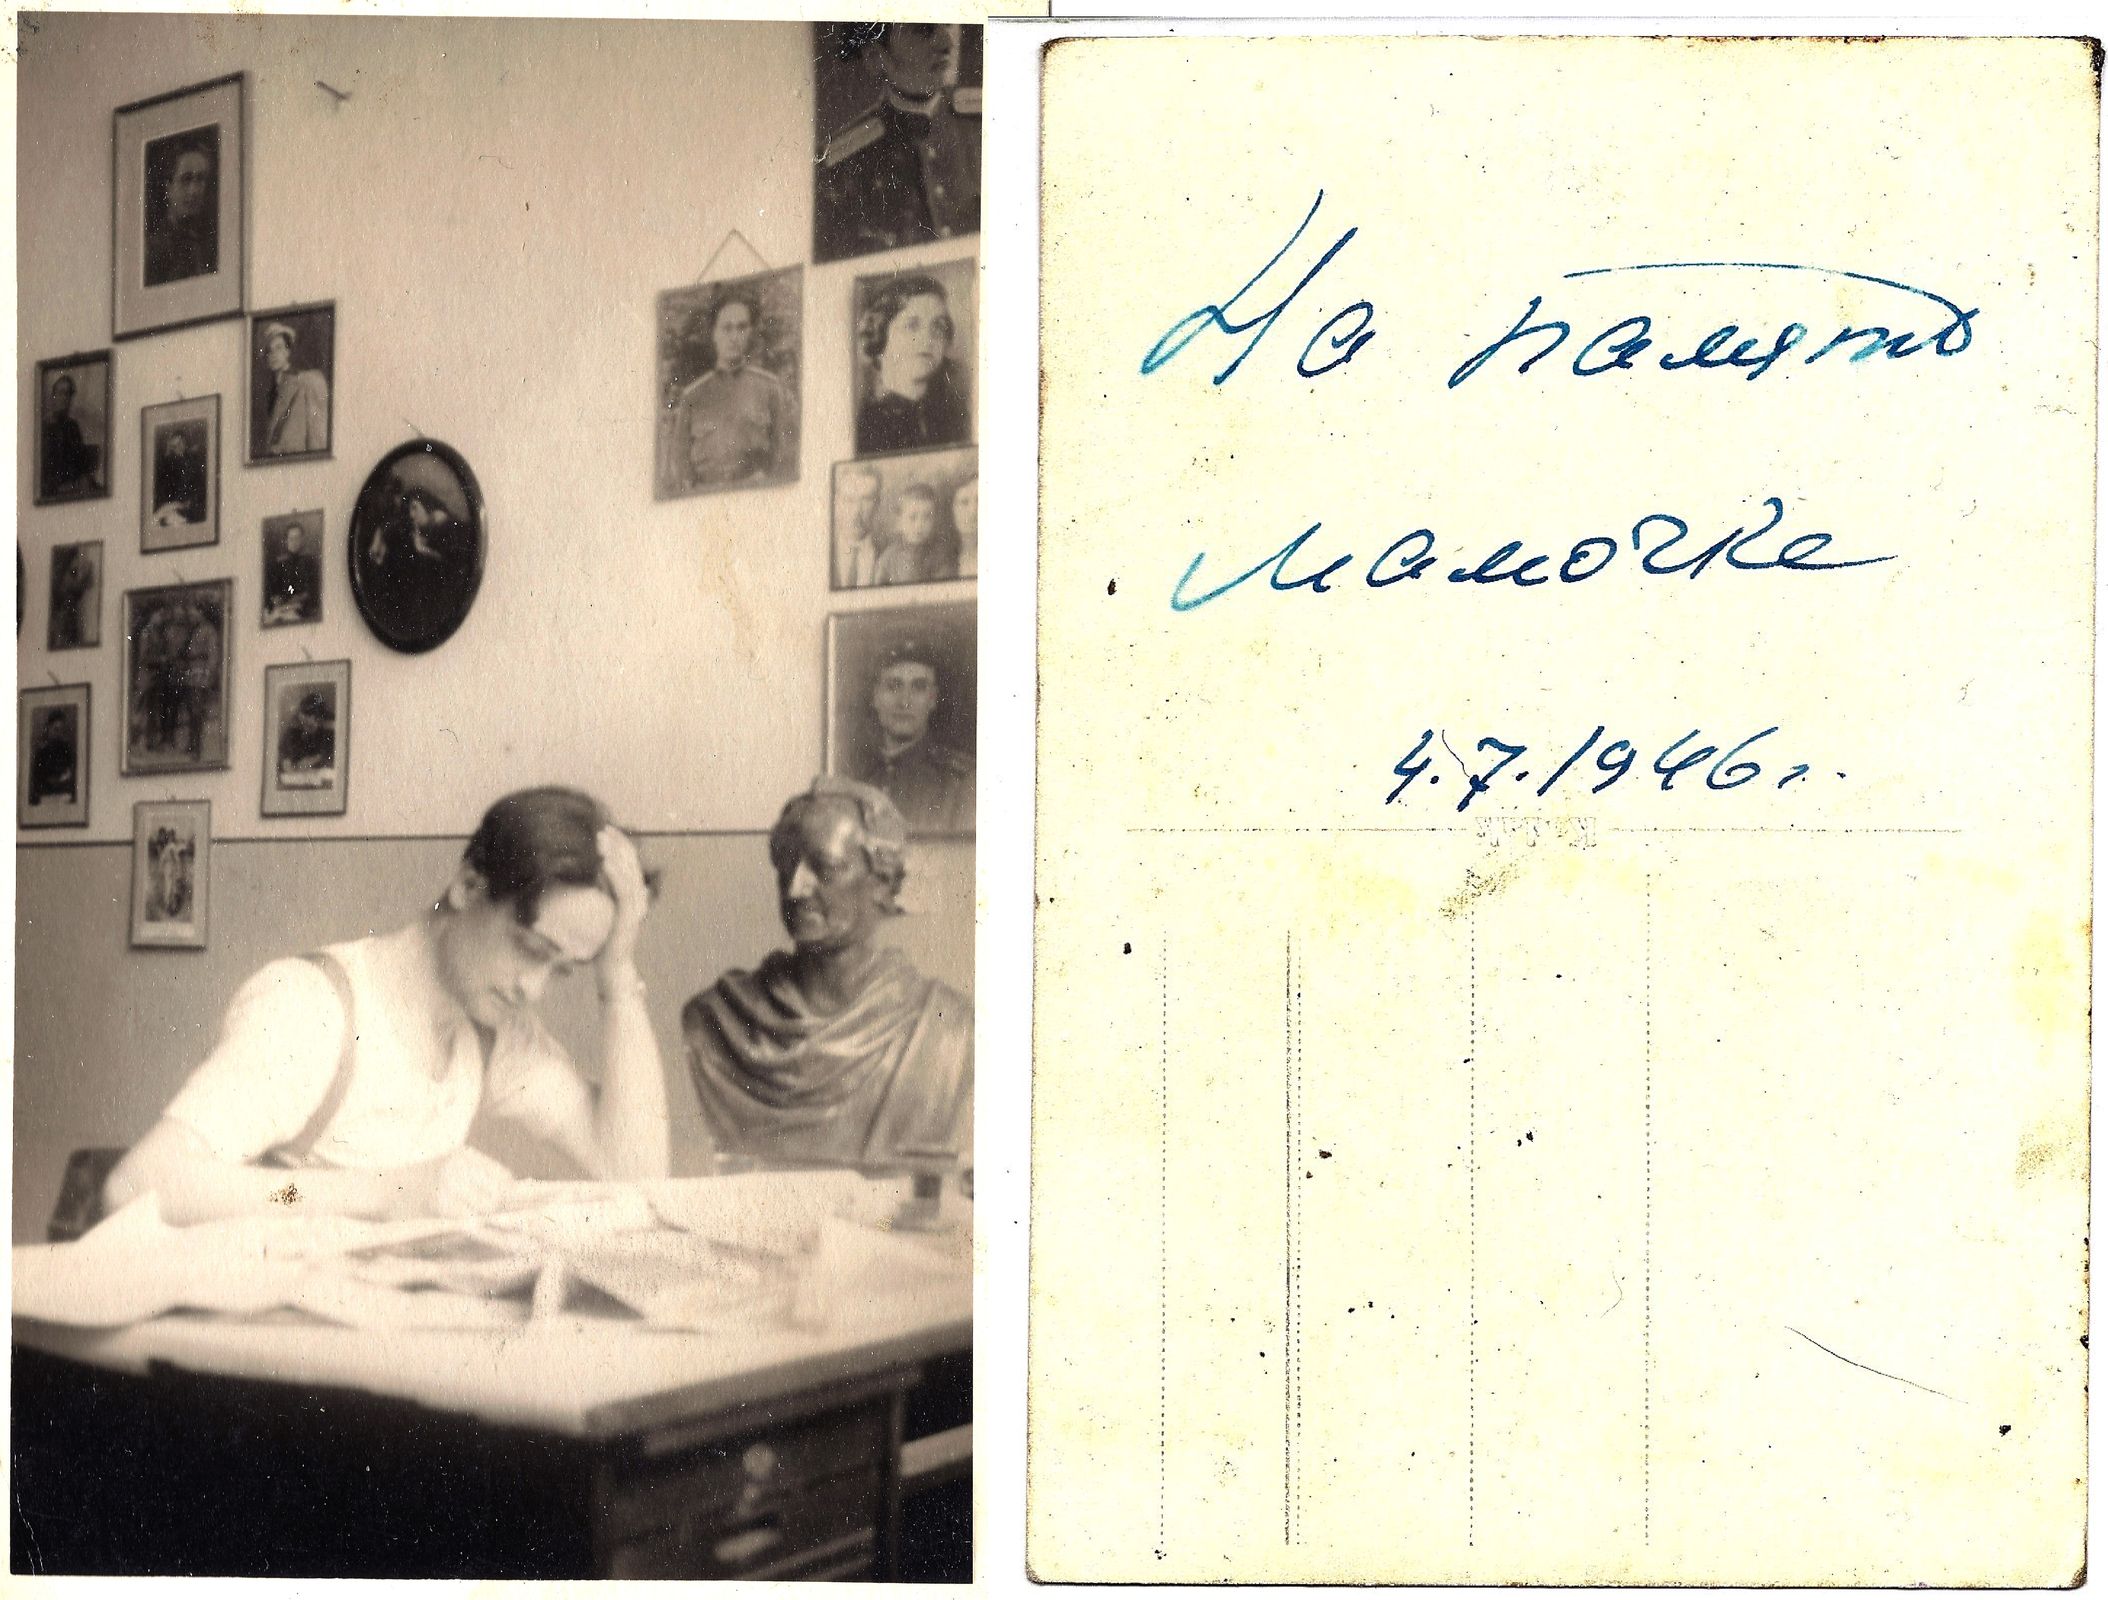 На память
мамочке
4.7.1946г.